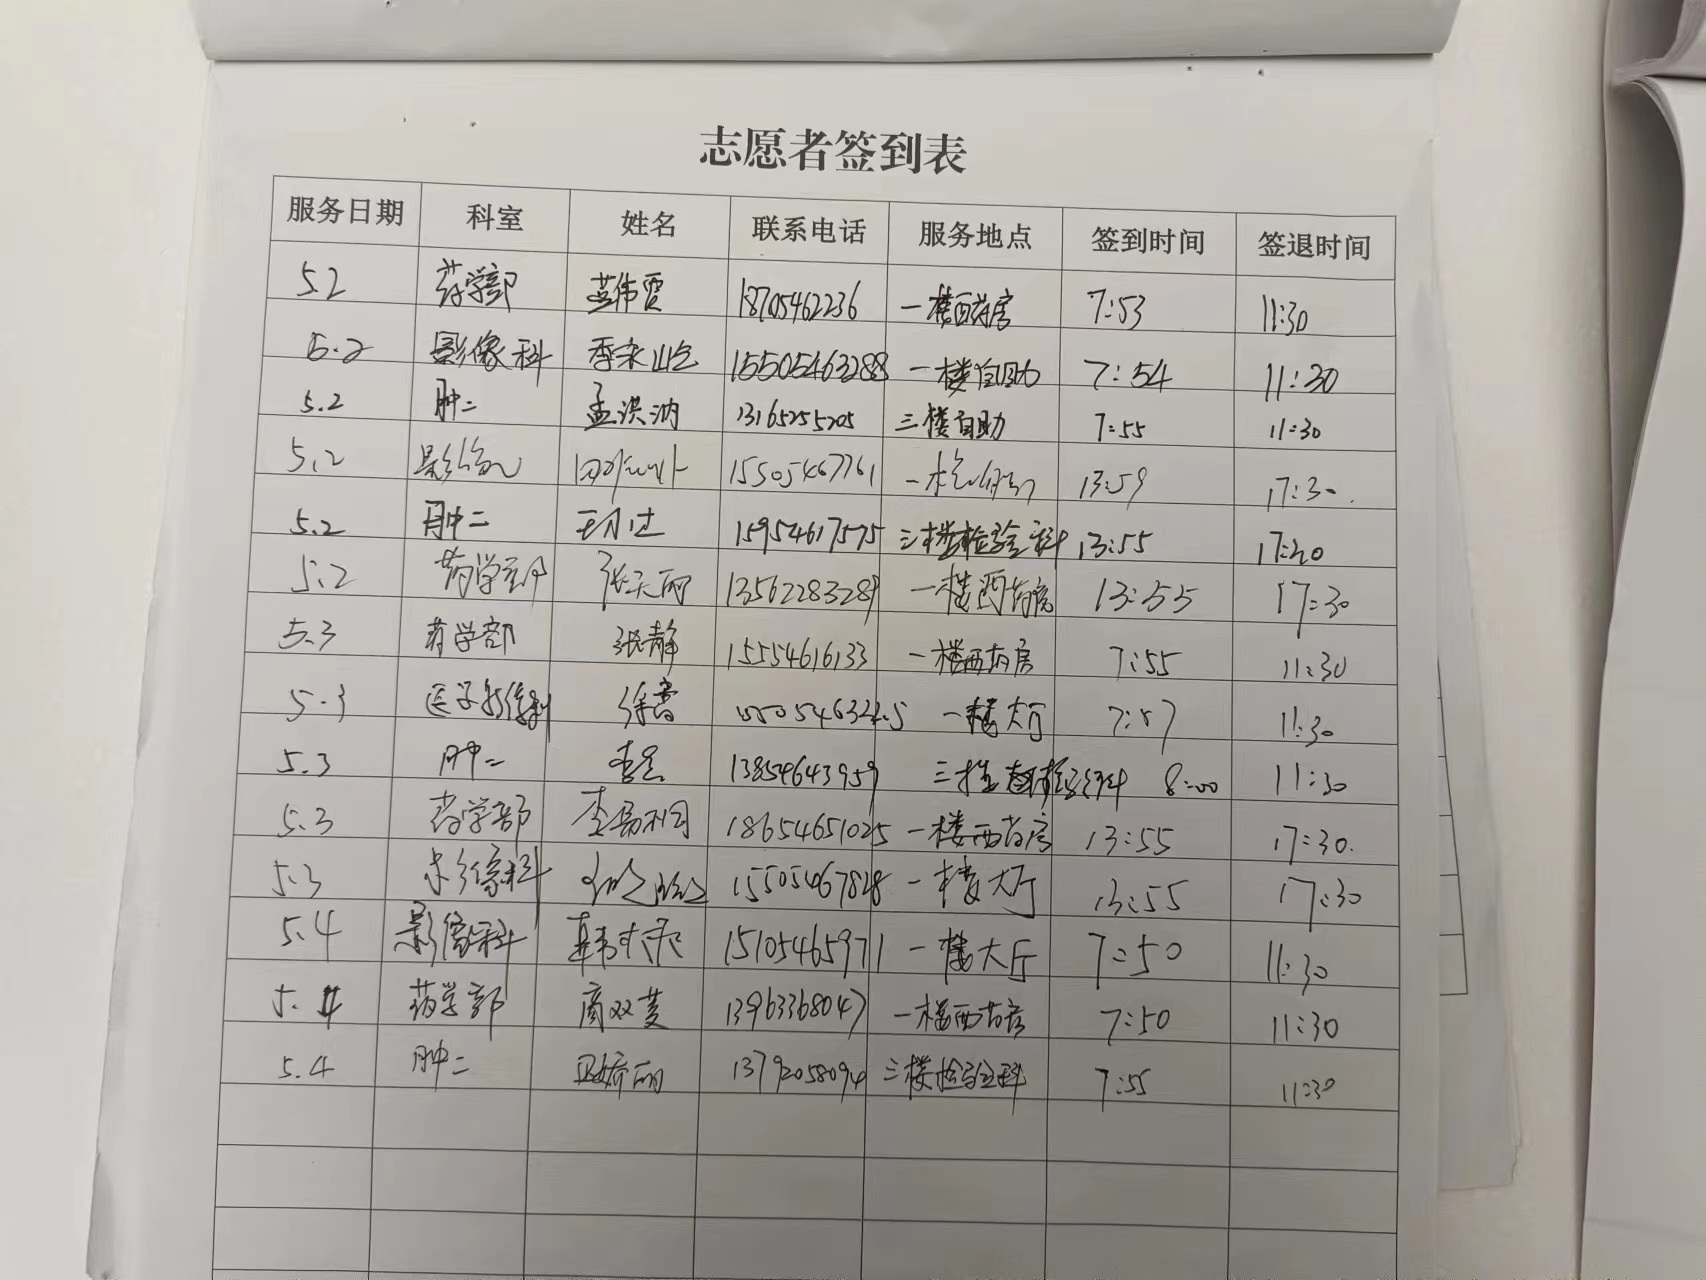 志愿者签到表
服务日期 科室 姓名 联系电话 服务地点 签到时间 签退时间
5.2 药学部 18705462236 一楼西药房 7:53 11:30
5.2 影像科 15505463288 一楼自助 7:54 11:30
5.2 肿二 孟洪沩 13165255205 三楼自助 7:55 11:30
5.2 15505467761 13:59 17:30.
5.2 肿二 15954617575 三楼检验科 13:55 17:30
5.2 药学部 张天丽 13562283289 一楼西药房 13:55 17:30
5.3 药学部 张静 15554616133 一楼西药房 7:55 11:30
5.3 医学影像科 徐 一楼大厅 7:57 11:30
5.3 肿二 13854643959 8:00 11:30
5.3 药学部 李易 18654651025 一楼西药房 13:55 17:30.
5.3 影像科 15505467828 一楼大厅 13:55 17:30
5.4 影像科 韩 15105465971 一楼大厅 7:50 11:30
5.4 药学部 商双芰 13963368047 一楼西药房 7:50 11:30
5.4 肿二 娇丽 13792058094 三楼检验科 7:55 11:30